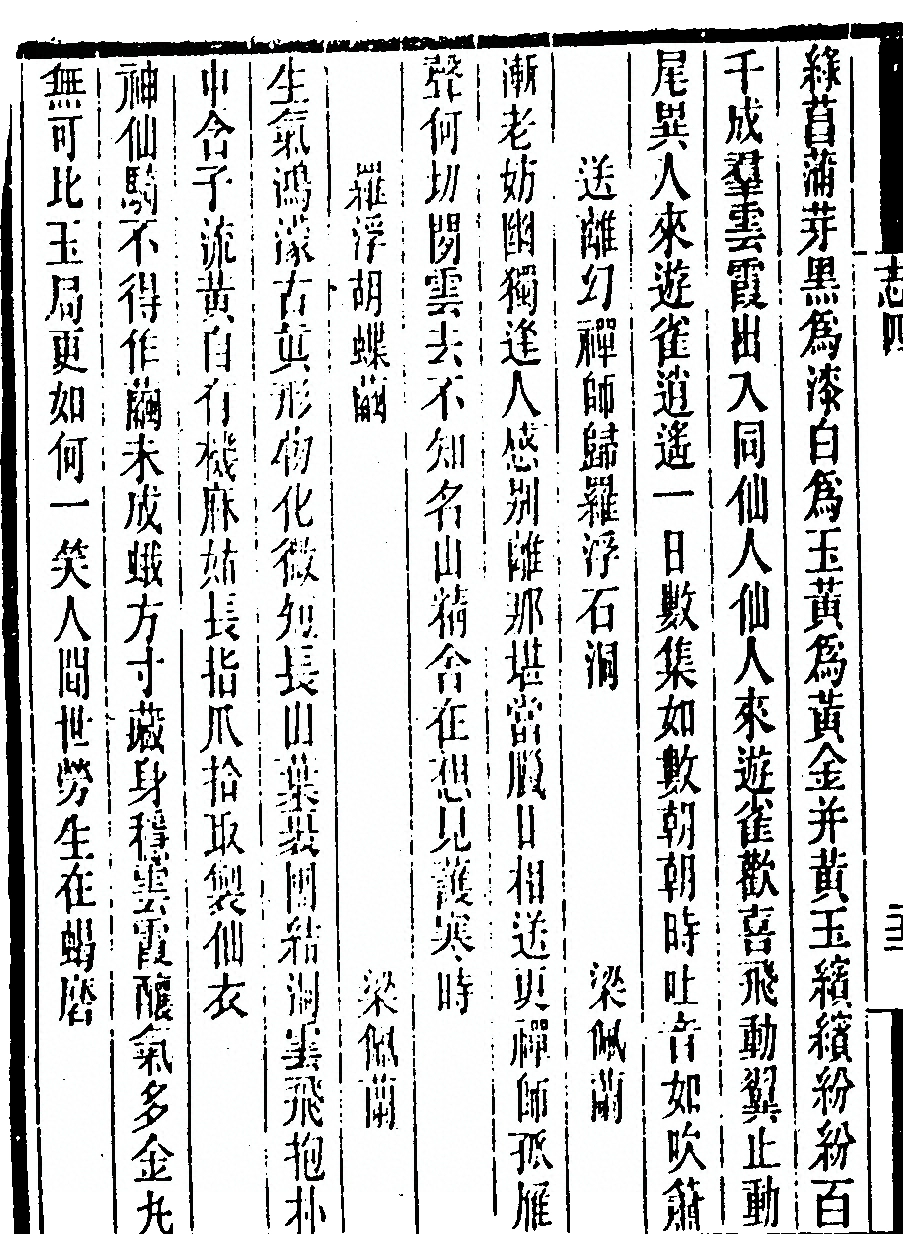 志四
綠菖蒲芽黑爲漆白爲玉黃爲黃金并黃玉繽繽紛紛百
千成羣雲霞出入同仙人仙人來遊雀歡喜飛動翼止動
尾異人來遊雀逍遙一日數集如數朝朝時吐音如吹簫
送離幻禪師歸羅浮石洞 梁佩蘭
漸老妨幽獨逢人感别離那堪當臘日相送更禪師孤雁
聲何切閒雲去不知名山精舍在想見護寒時
羅浮胡蝶繭 梁佩蘭
生氣鴻濛古眞形物化微短長山葉裂團結洞雲飛抱朴
中含子流黃自有機麻姑長指爪拾取製仙衣
神仙騎不得作繭未成蛾方寸藏身穩雲霞釀氣多金丸
無可比玉局更如何一笑人間世勞生在蝎磨